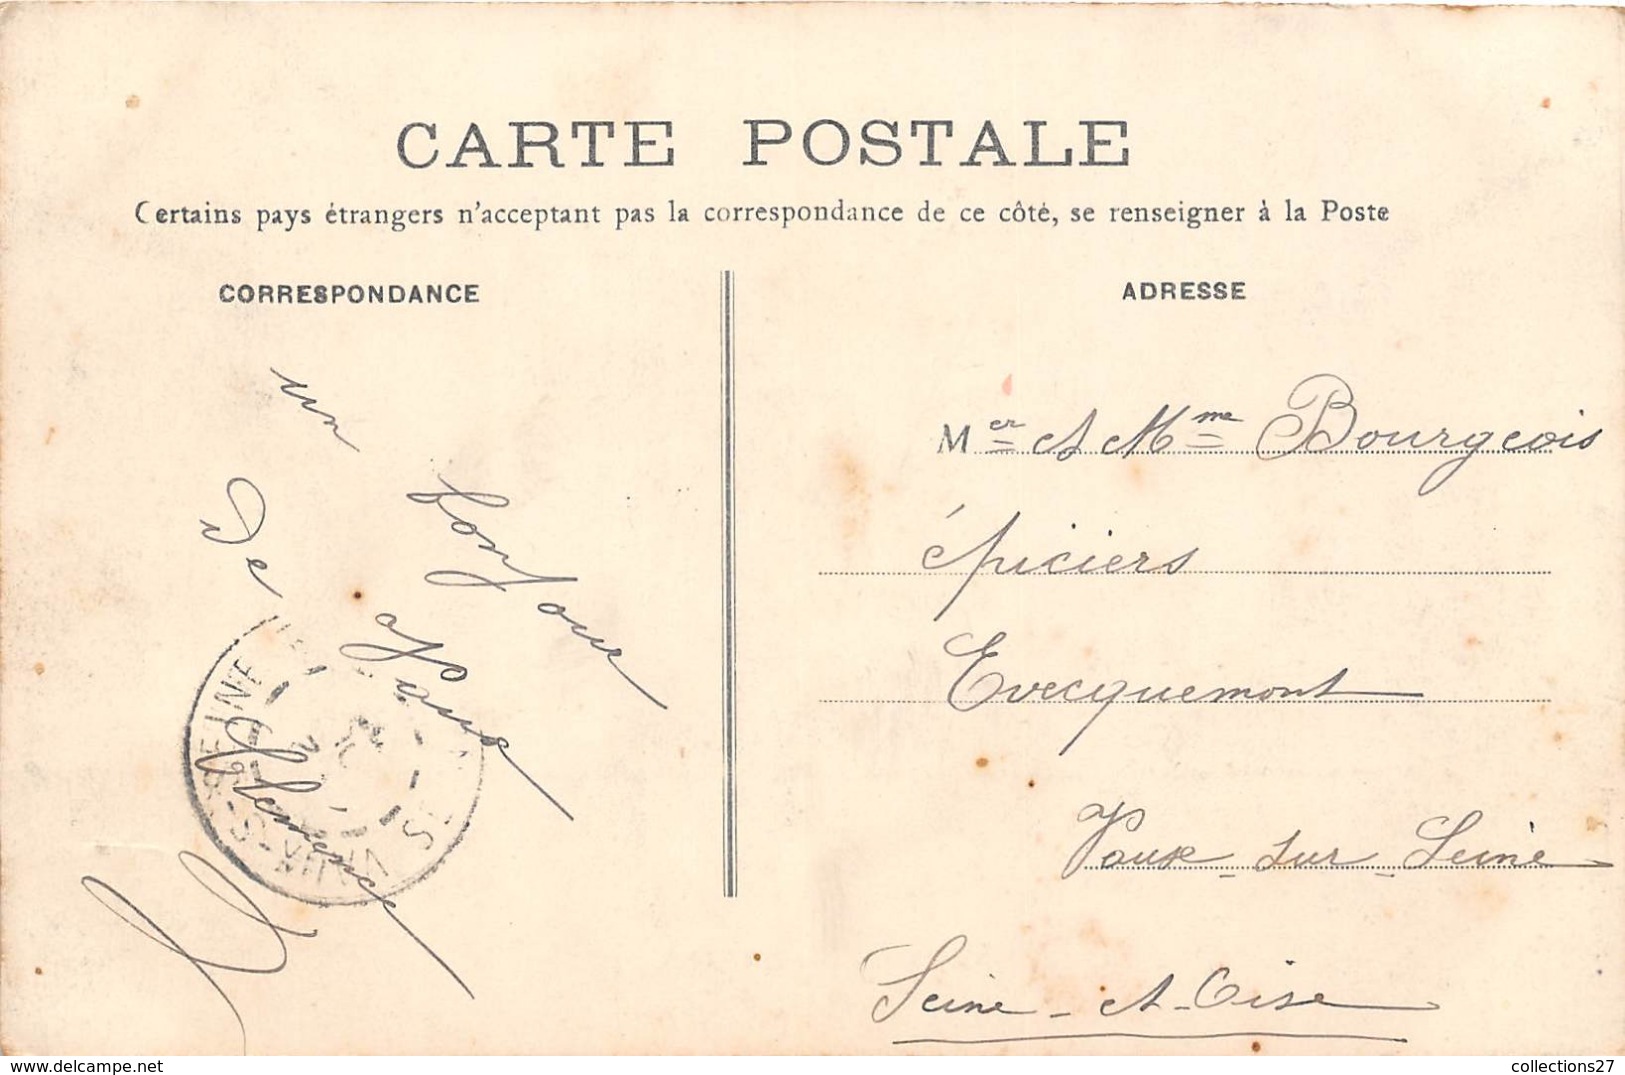 CARTE POSTALE
Certains pays étrangers n'acceptent pas la correspondance de ce côté, se renseigner à la Poste
CORRESPONDANCE
ADRESSE
un
bonjour
De
Clémence
Mer et Mme Bourgeois
épiciers
Evecquemont
Vaux-sur-Seine
Seine-et-Oise
SEINE
collections27